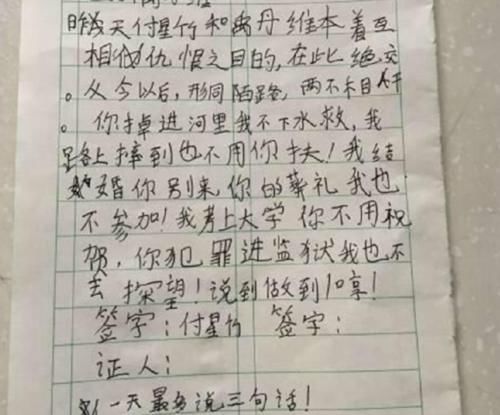 昨天付星竹和禹丹维本着互
相仇恨之目的,在此绝交
。从今以后,形同陌路,两不相干
。你掉进河里我不下水救,我
路上摔到也不用你扶!我结
婚你别来,你的葬礼我也
不参加!我考上大学你不用祝
贺,你犯罪进监狱我也不
去探望!说到做到!哼!
签字:付星竹 签字:
证人:
一天最多说三句话!